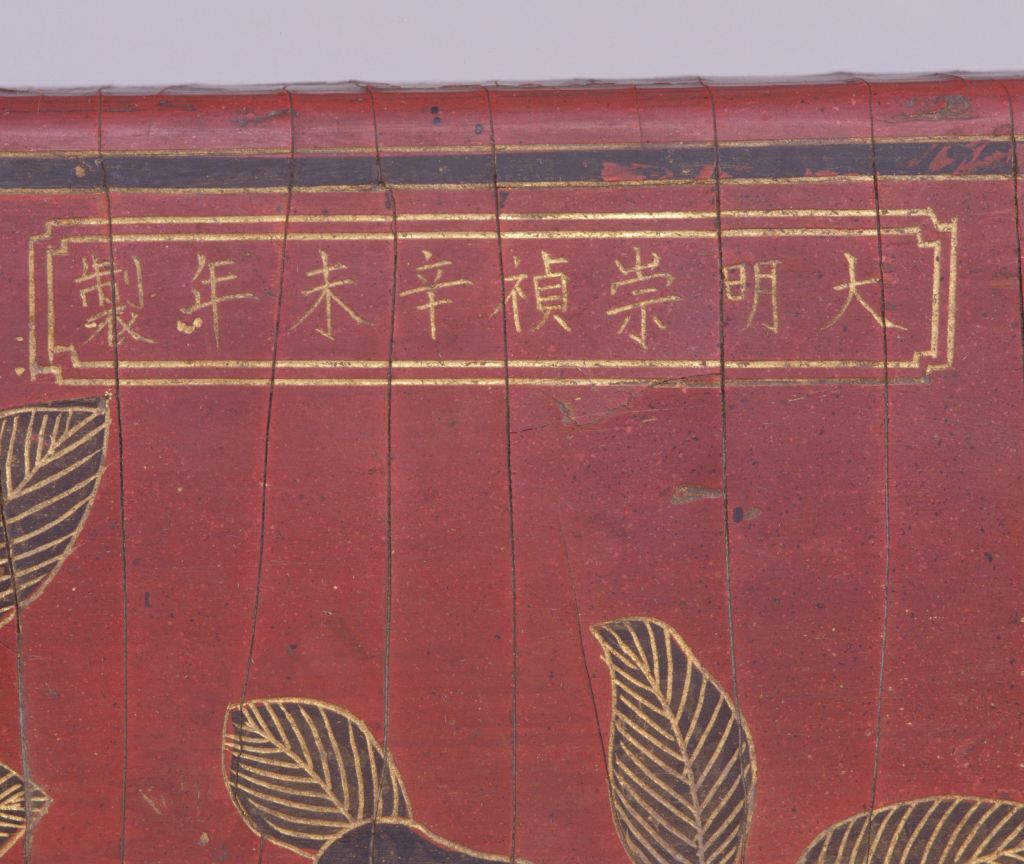 大明崇禎辛未年製